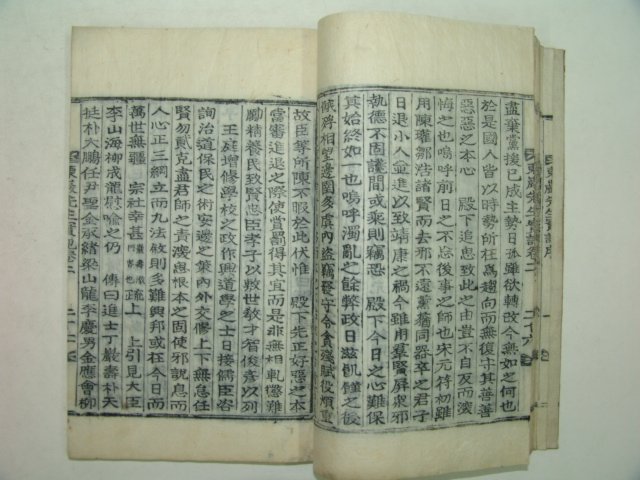 盡棄黨援已成主勢日孤雖欲轉改今無如之何也
於是國人皆以時勢所在爲趨向而無復守其善善
惡惡之本心 殿下追思致此之由豈不自反而深
悔之也嗚呼前日之不忘後事之師也宋元符初雖
用陳瓘鄒浩諸賢而不遠薰蕕同器卒之君子
日退小人並進以致靖康之禍今雖用羣賢屏衆邪
執德不固讒間或乘則竊恐 殿下今日之心難保
其始終如一也嗚呼濁亂之餘弊政日滋飢饉之後
相望邊圉多虞內盜竊發守令貪殘賦役煩重
故臣等所陳不暇於此伏惟 殿下先正好惡之本
當審進退之際使賞罰得其宜而是非無相軋懲難
勵精養民致賢思孝子以救世敎才智俊彥以列
王庭增修學校之政作興道學之士日接儒臣咨
詢治道保民之術安邊之策內外交修上下無怠任
賢勿貳克盡君師之責浚思根本之固使邪說息而
人心正三綱立而九法敘則多難興邦或在今日而
萬世無疆 宗社幸甚 疏上 上引見大臣
李山海柳成龍慰喩之仍 傳曰進士丁巖壽朴天
挺朴大鵬任尹聖金承緖梁山龍李慶男金應會柳
東巖先生實記卷二